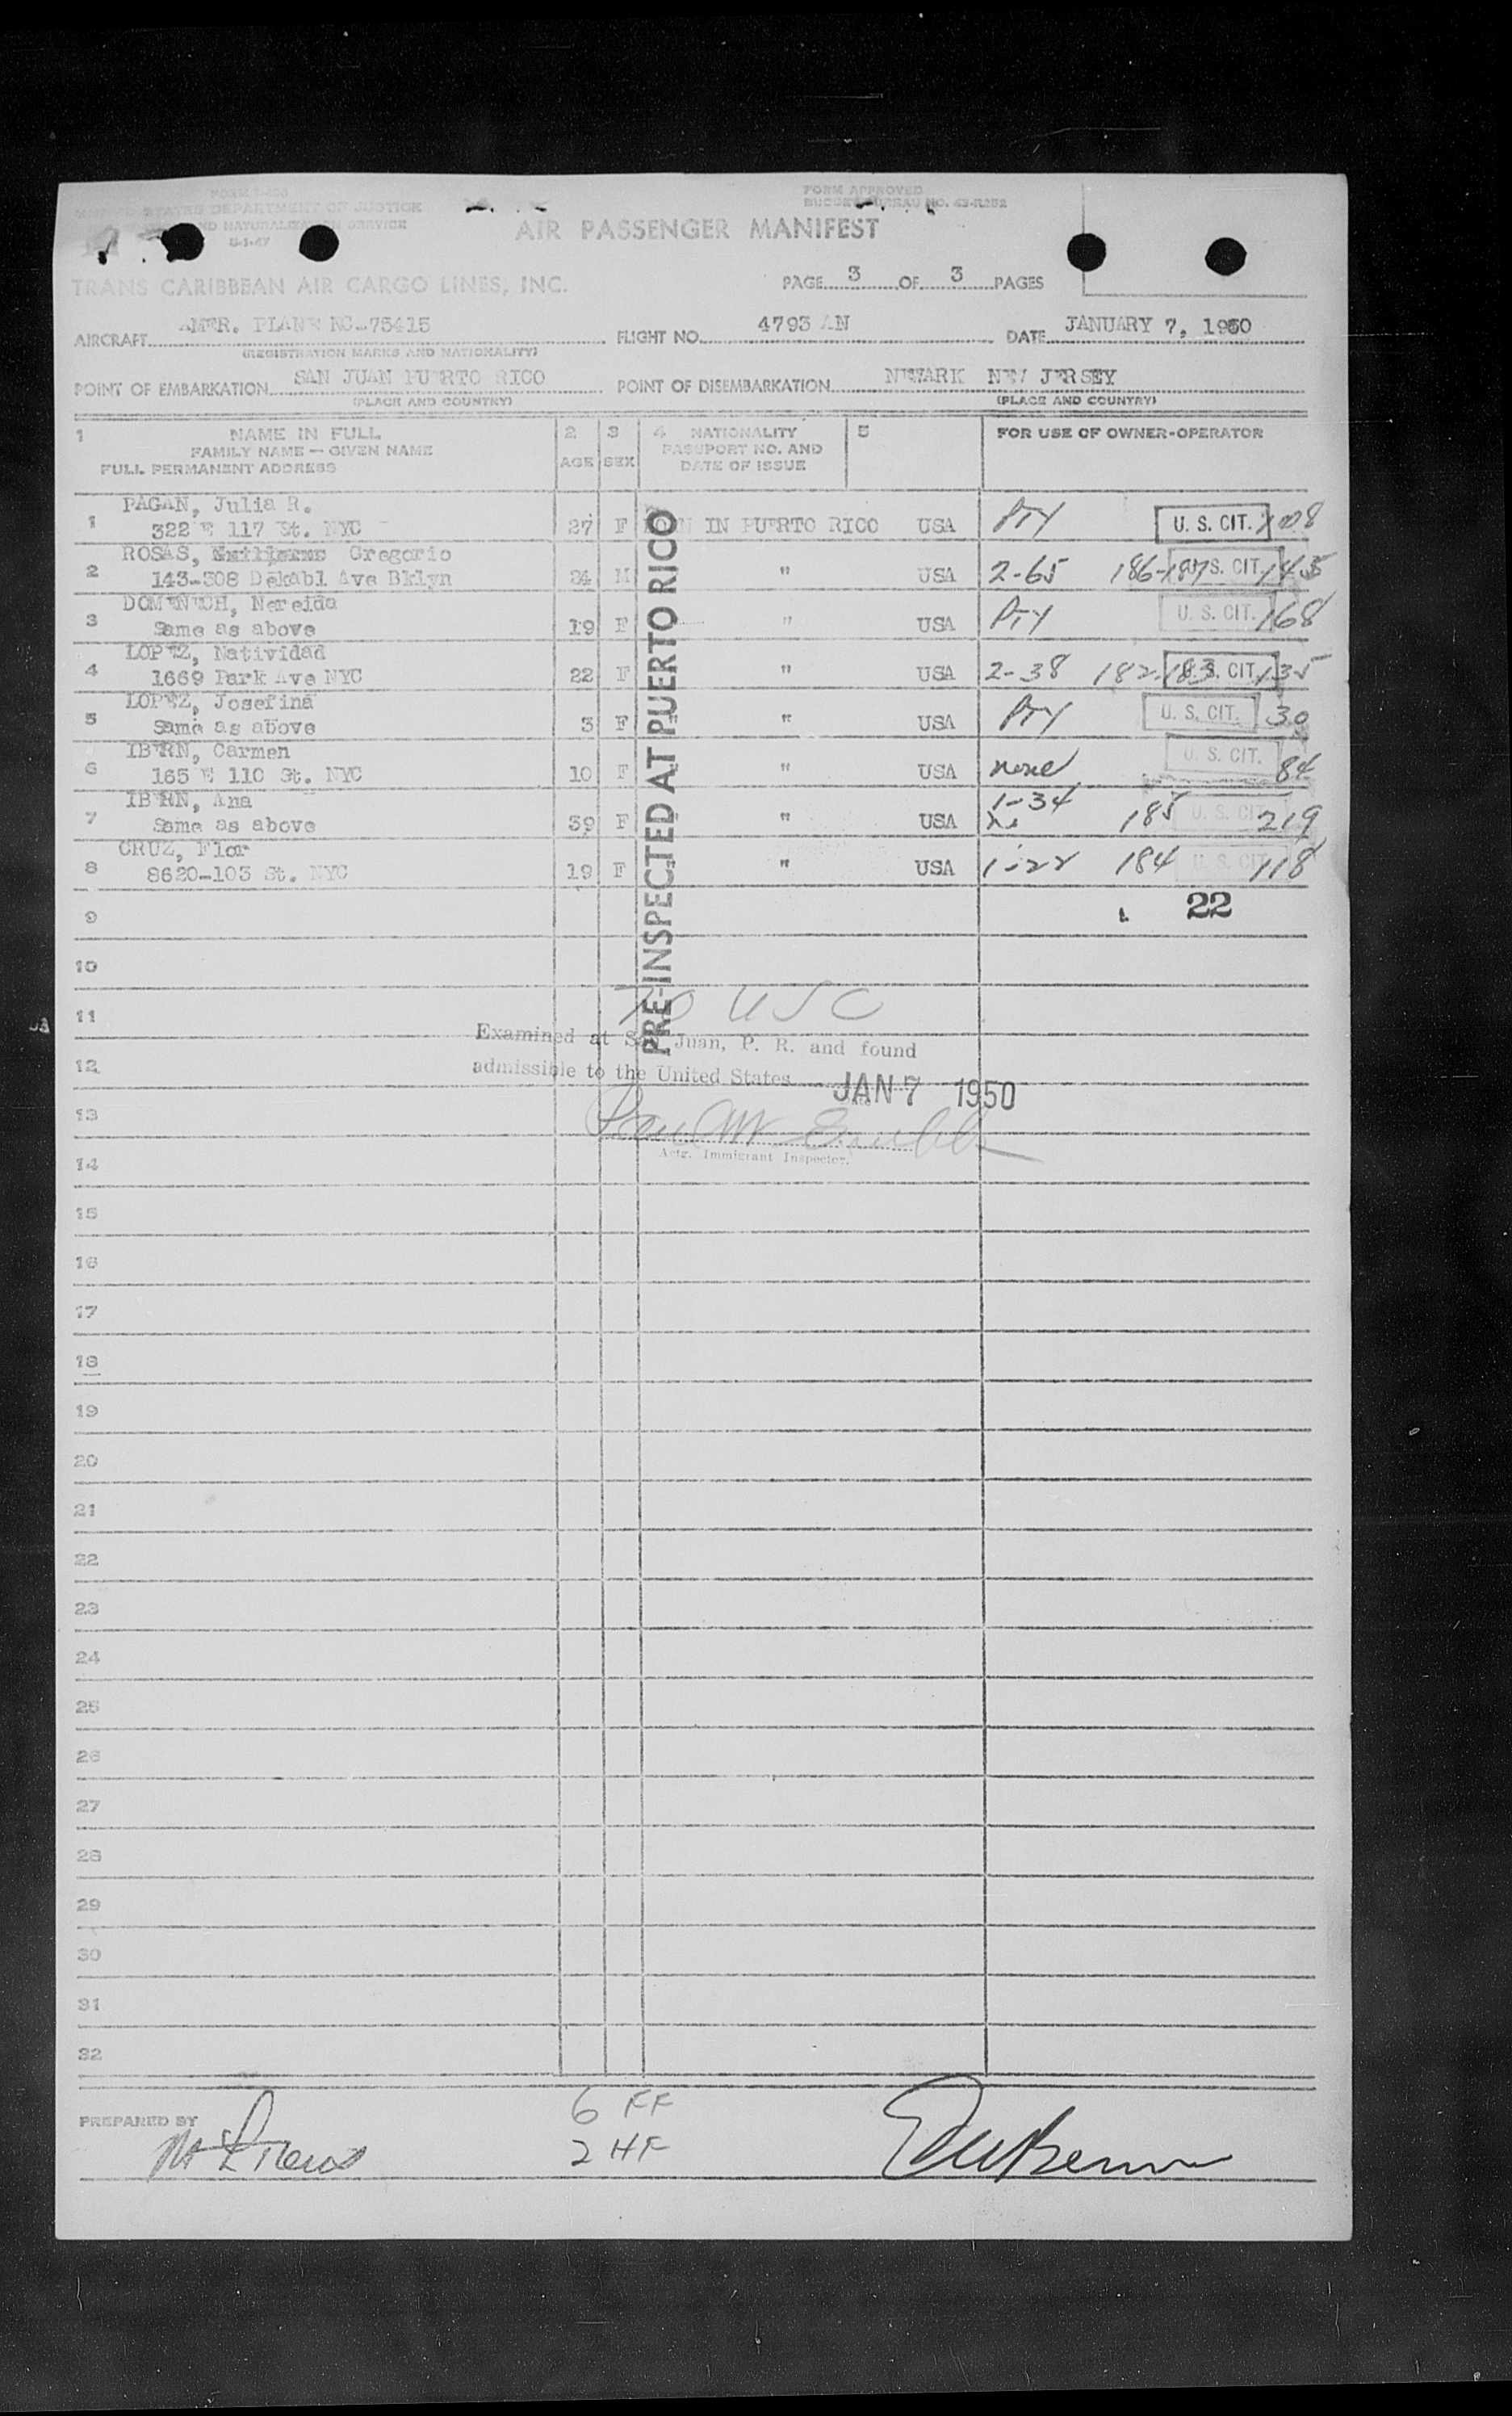 FORM APPROVED
BUDGET BUREAU NO. 43-R252
STATES DEPARTMENT OF JUSTICE
AND NATURALIZATION SERVICE
AIR PASSENGER MANIFEST
TRANS CARIBBEAN AIR CARGO LINES, INC.
PAGE 3 OF 3 PAGES
AIRCRAFT AMER. PLANE NC-75415 FLIGHT NO. 4793 AN DATE JANUARY 7, 1950
(REGISTRATION MARKS AND NATIONALITY)
POINT OF EMBARKATION SAN JUAN PUERTO RICO POINT OF DISEMBARKATION NEWARK NEW JERSEY
(PLACE AND COUNTRY) (PLACE AND COUNTRY)
1 NAME IN FULL 2 3 4 NATIONALITY 5 FOR USE OF OWNER-OPERATOR
FAMILY NAME — GIVEN NAME AGE SEX PASSPORT NO. AND
FULL PERMANENT ADDRESS DATE OF ISSUE
PAGAN, Julia R.
1 322 E 117 St. NYC 27 F BORN IN PUERTO RICO USA Pty U. S. CIT. 108
ROSAS, Gregorio
2 143-308 Dekabl Ave Bklyn 24 M " USA 2-65 186-187 U. S. CIT. 145
DOMENECH, Nereida
3 Same as above 19 F " USA Pty U. S. CIT. 168
LOPEZ, Natividad
4 1669 Park Ave NYC 22 F " USA 2-38 182-183 U. S. CIT. 135
LOPEZ, Josefina
5 Same as above 3 F " USA Pty U. S. CIT. 30
IBERN, Carmen
6 165 E 110 St. NYC 10 F " USA none U. S. CIT. 84
IBERN, Ana
7 Same as above 39 F " USA 1-34 185 U. S. CIT. 219
CRUZ, Flor
8 8620-103 St. NYC 19 F " USA 1-22 184 U. S. CIT. 118
PRE-INSPECTED AT PUERTO RICO
9 22
10
11 USC
Examined at San Juan, P. R. and found
12 admissible to the United States JAN 7 1950
13
Actg. Immigrant Inspector.
14
15
16
17
18
19
20
21
22
23
24
25
26
27
28
29
30
31
32
6 FF
PREPARED BY
2 HF